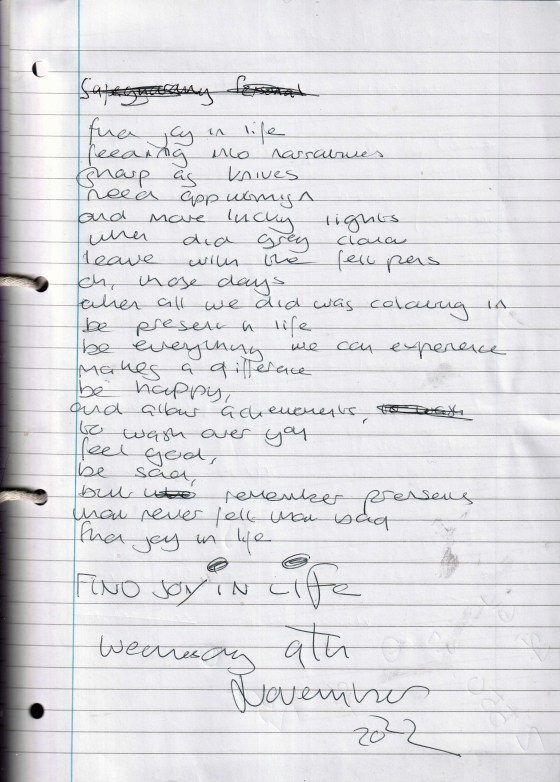 find joy in life
feeding into narratives
sharp as knives
need app
and more lucky lights
when did grey cloud
leave with the felt pens
oh, those days
when all we did was colouring in
be present in life
be everything we can experience
makes a difference
be happy,
and allow achievements,
to wash over you
feel good,
be sad,
but remember presents
that never felt that bad
find joy in life
FIND JOY IN LIFE
Wednesday 9th
November
2022